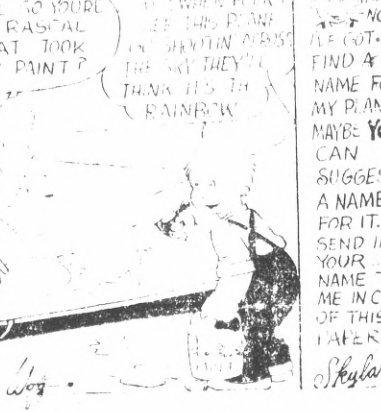 SO YOURE
RASCAL
AT TOOK
PAINT?
WHEN
SEE THIS PLANE
SHOOTIN' ACROSS
THE SKY THEY'LL
THINK IT'S TH'
RAINBOW
I'VE GOT
FIND A
NAME FO
MY PLAN
MAYBE YO
CAN
SUGGES
A NAME
FOR IT.
SEND I
YOUR
NAME T
ME IN C
OF THIS
PAPER
Skyla